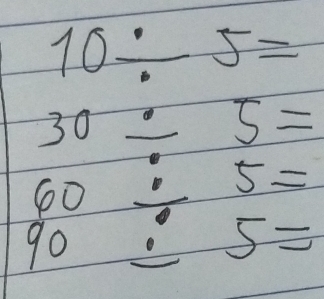 10 ÷ 5 =
30 ÷ 5 =
60 ÷ 5 =
90 ÷ 5 =